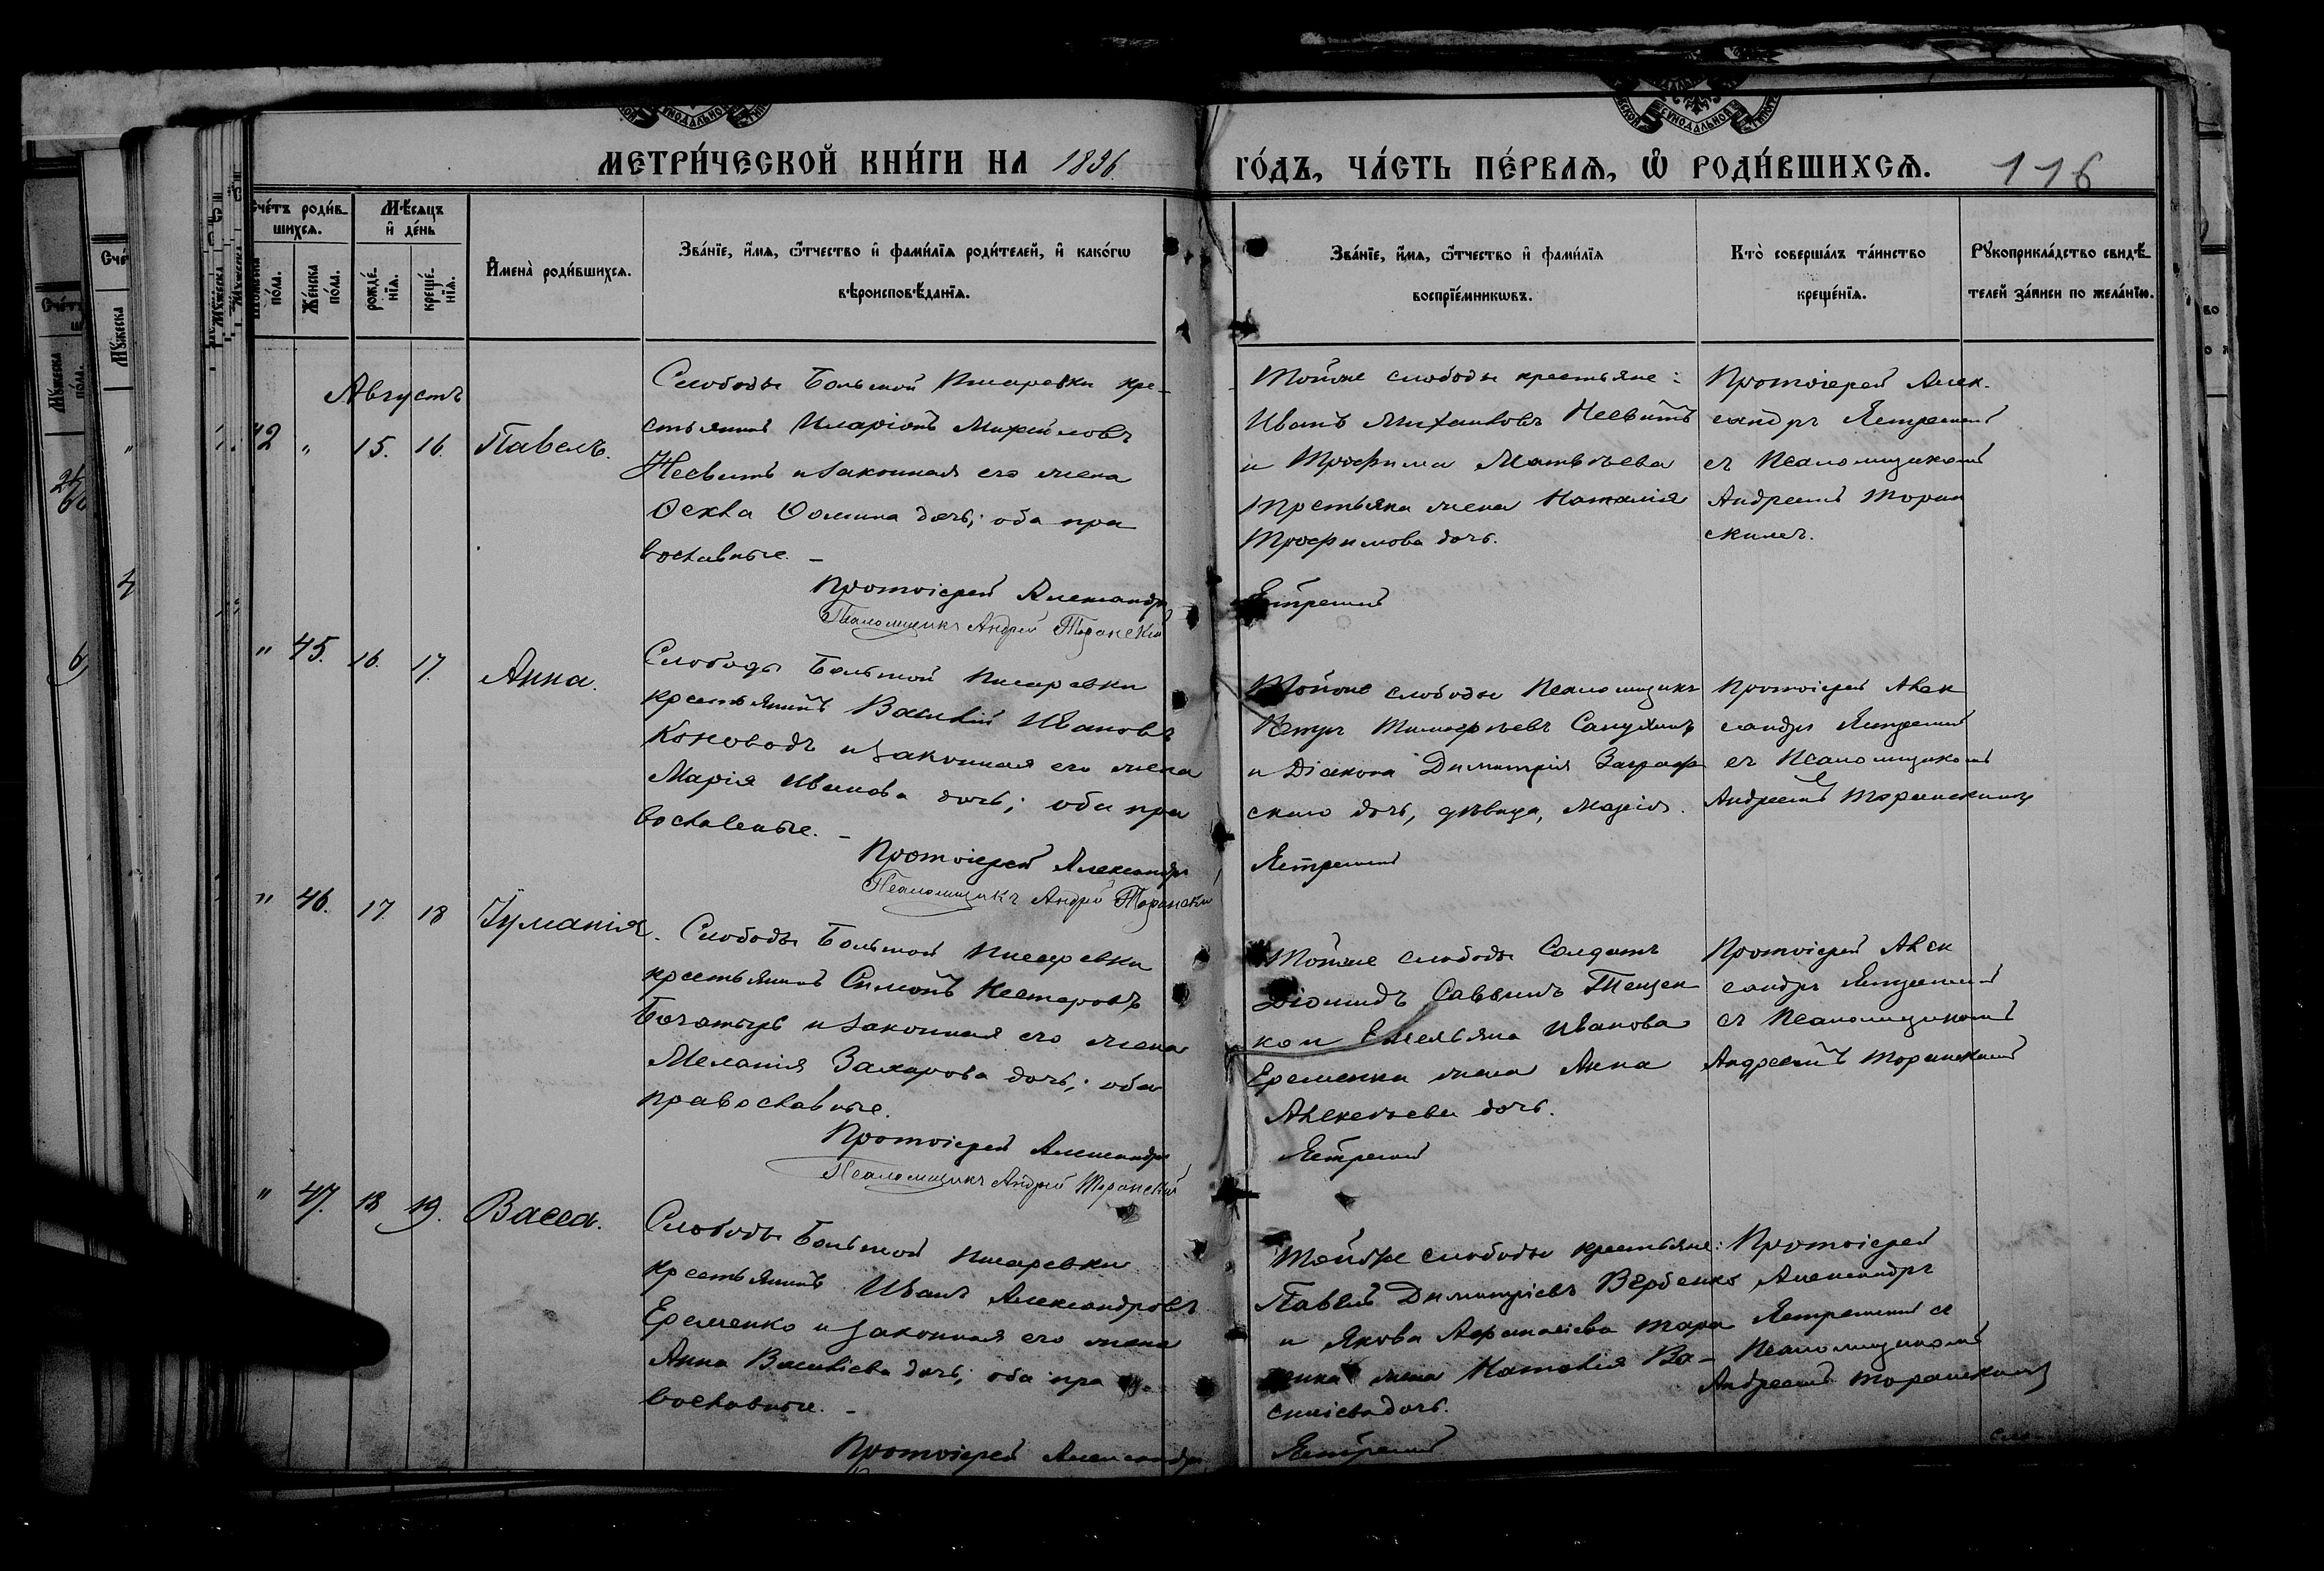 МЕТРИ́ЧЕСКОЙ КНИ́ГИ НА 1896.
ГО́ДЪ, ЧА́СТЬ ПЕ́РВАѦ, Ѡ҆ РОДИ́ВШИХСѦ.
116
Сче́тъ роди́в-
шихсѧ.
Мѣ́сѧцъ
и҆ де́нь
Мꙋ́жеска
по́ла.
Же́нска
по́ла.
рожде́-
нїѧ.
креще́-
нїѧ.
И҆мена̀ роди́вшихсѧ.
Зва́нїе, и҆́мѧ, ѻ҆́тчество и҆ фами́лїѧ роди́телей, и҆ како́гѡ
вѣроисповѣ́данїѧ.
Зва́нїе, и҆́мѧ, ѻ҆́тчество и҆ фами́лїѧ
воспрїе́мникѡвъ.
Кто̀ соверша́лъ та́инство
креще́нїѧ.
Рꙋкоприкла́дство свидѣ́-
телей за́писи по жела́нїю.
Августъ
42 " 15. 16. Павелъ.
Слободы Большой Писаревки кре-
стьянинъ Иларіонъ Михайловъ
Несвитъ и законная его жена
Ѳекла Ѳомина дочь; оба пра
вославные. –
Протоіерей Александръ
Псаломщикъ Андрей Торанскій
Тойже слободы крестьяне:
Иванъ Михайловъ Несвитъ
и Трофима Матвѣева
жена Наталія
Трофимова дочь.
Ястремскій
Протоіерей Алек-
сандръ Ястремскій
съ Псаломщикомъ
Андреемъ Торан
скимъ.
" 45. 16. 17. Анна.
Слободы Большой Писаревки
крестьянинъ Василій Ивановъ
Коноводъ и законная его жена
Марія Иванова дочь; оба пра
вославные. –
Протоіерей Александръ
Псаломщикъ Андрей Торанскій
Тойже слободы Псаломщикъ
Петръ Тимофѣевъ
и Діакона Димитрія
скаго дочь, дѣвица, Марія.
Ястремскій
Протоіерей Алек
сандръ Ястремскій
съ Псаломщикомъ
Андреемъ Торанскимъ
" 46. 17. 18 Іуліанія.
Слободы Большой Писаревки
крестьянинъ Симонъ Нестеровъ
Богатырь и законная его жена
Меланія Захарова дочь; оба
православные.
Протоіерей Александръ
Псаломщикъ Андрей Торанскій
Тойже слободы Солдатъ
Діомидъ Саввинъ Тещен
ко и Емельяна Иванова
Еременка жена Анна
Алексѣева дочь.
Ястремскій
Протоіерей Алек
сандръ Ястремскій
съ Псаломщикомъ
Андреемъ Торанскимъ
" 47. 18 19. Васса.
Слободы Большой Писаревки
крестьянинъ Иванъ Александровъ
Еременко и законная его жена
Анна Василіева дочь; оба пра
вославные. –
Протоіерей Александръ
Тойже слободы крестьяне:
Павелъ Димитріевъ Вербенко
и Якова Аѳанасіева Тара
жена Наталія Ва-
силіева дочь.
Ястремскій
Протоіерей
Александръ
Ястремскій съ
Псаломщикомъ
Андреемъ Торанскимъ